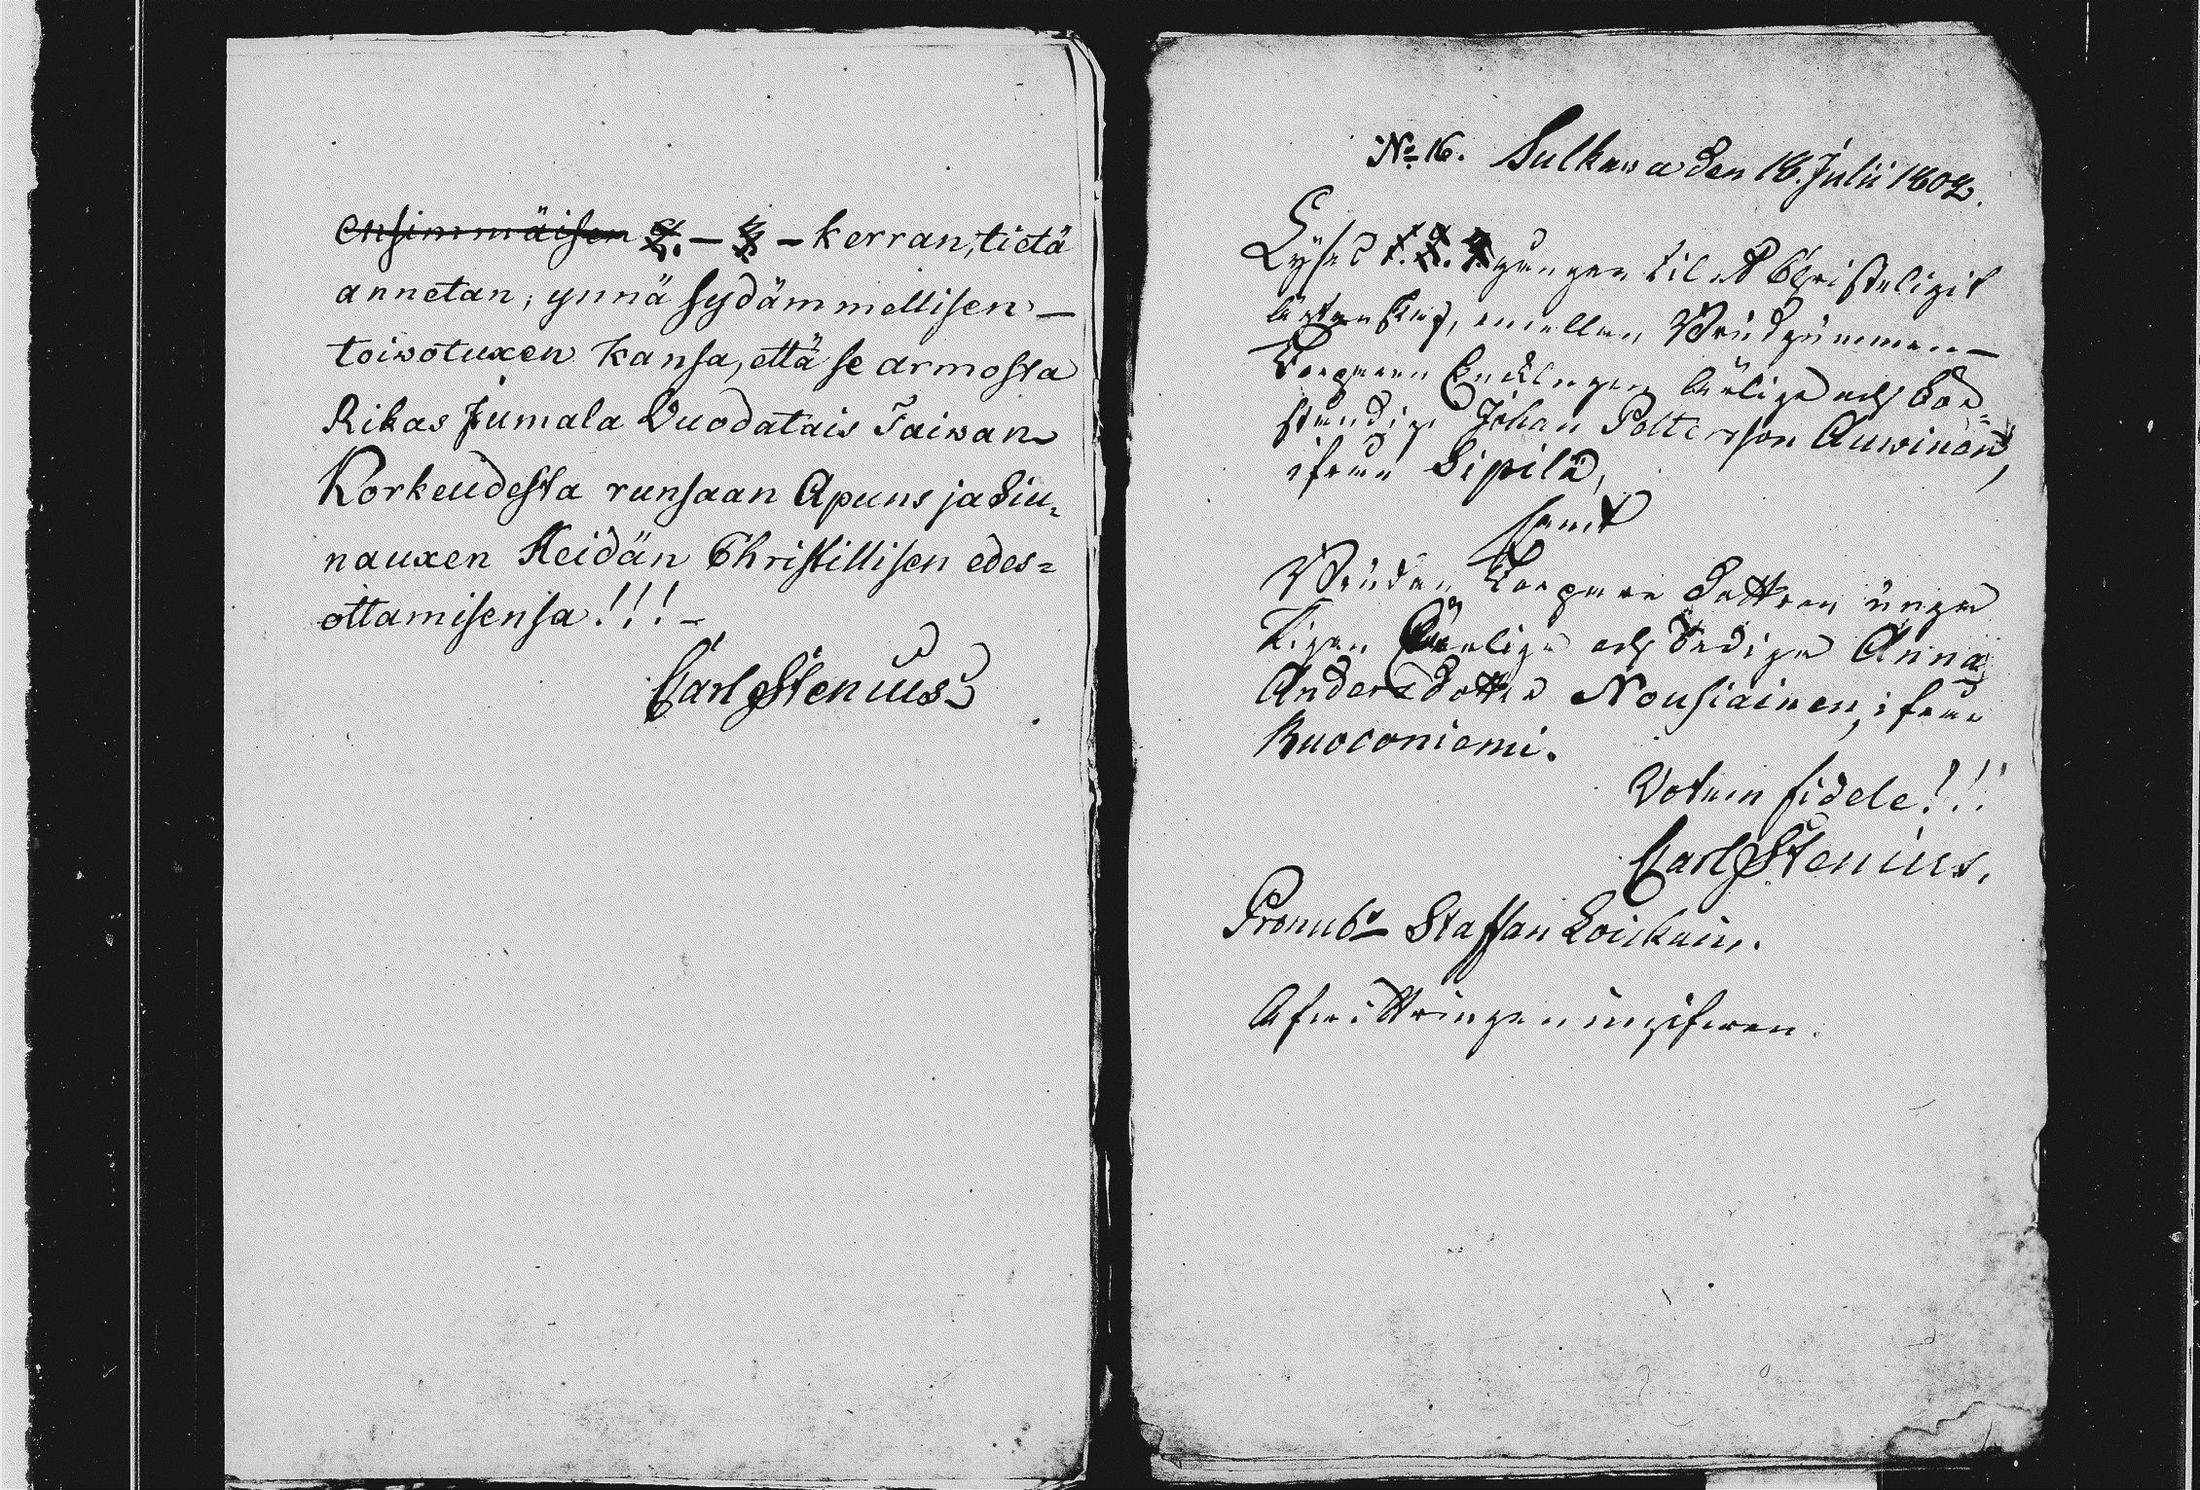 ensimmäisen 2. – 3. – kerran, tietä
annetan, ynnä sydämmellisen –
toiwotuxen kansa, että se armosta
Rikas Jumala Vuodatais Taiwan
Korkeudesta runsaan Apuns ja Siu=
nauxen Heidän Christillisen edes=
ottamisensa!!! –
Carl Stenius
No 16. Sulkawa den 18. Julii 1802.
Lyses 1. 2. 3. gången til et Christeligit
ägtenskap, emellan Brudgummen –
Torparen Enklingen ärlige och
Johan Pettersson Auwinen,
ifrån Sipilä,
samt
Bruden, Torpare Dottren unga
Pigan Ärliga och Sediga Anna
Andersdotter Nousiainen, ifrån
Ruoconiemi.
Votum fidele!!!
Carl Stenius.
Pronubr Staffan
Afwittringen ungifwen.